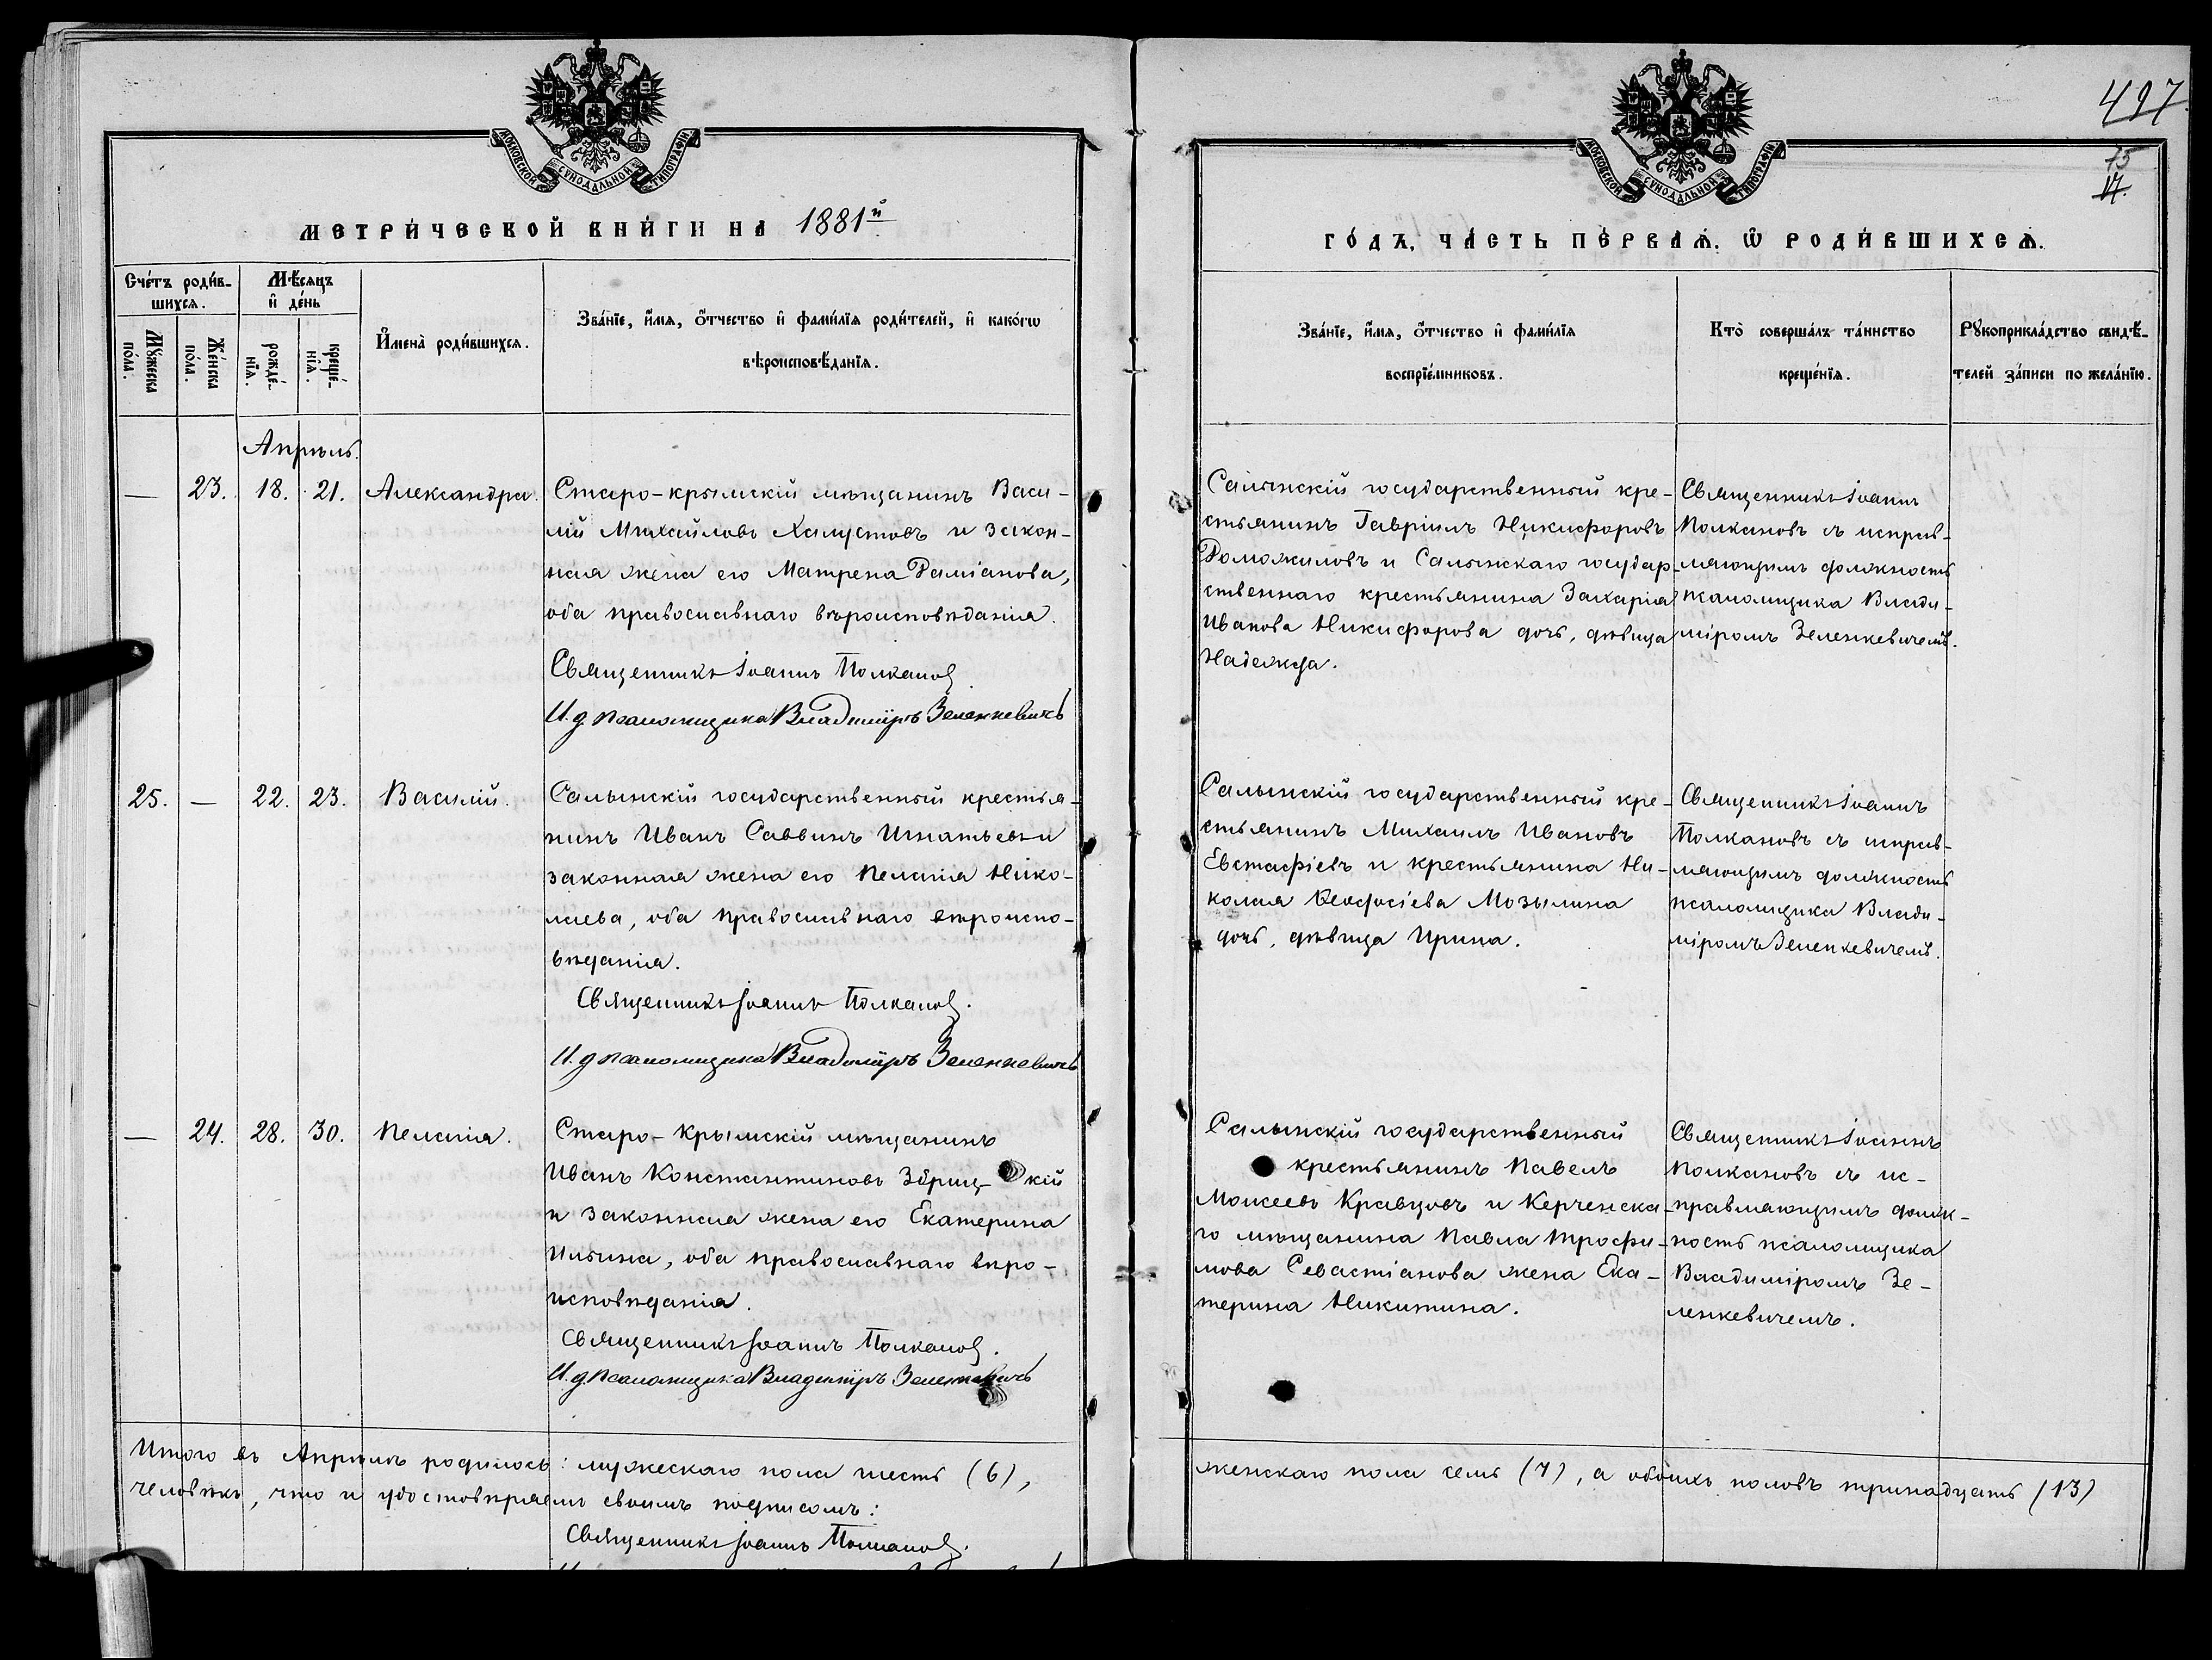 МОСКОВСКОЙ СѴНОДАЛЬНОЙ ТИПОГРАФІИ
МЕТРИ́ЧЕСКОЙ КНИ́ГИ НА 1881й
Сче́тъ роди́в-
шихся.
Мѣ́сяцъ
и҆ де́нь
Мꙋ́жеска
по́ла.
Же́нска
по́ла.
рожде́-
нїѧ.
креще́-
нїѧ.
И҆мена̀ роди́вшихся.
Зва́нїе, и҆́мѧ, ѻ҆́тчество и҆ фами́лїѧ роди́телей, и҆ како́гѡ
вѣроисповѣ́данїѧ.
Апрѣль.
— 23. 18. 21. Александра.
Старо-крымскій мѣщанинъ Васи-
лій Михайловъ Хамустовъ и закон-
ная жена его Матрена Даміанова,
оба православнаго вѣроисповѣданія.
Священникъ Іоаннъ Полкановъ
И. д. псаломщика Владиміръ Зеленкевичъ
25. — 22. 23. Василій.
Салынскій государственный крестья-
нинъ Иванъ Саввинъ Игнатьевъ и
законная жена его Пелагія Нико-
лаева, оба православнаго вѣроиспо-
вѣданія.
Священникъ Іоаннъ Полкановъ.
И. д. псаломщика Владиміръ Зеленкевичъ
— 24. 28. 30. Пелагія.
Старо-Крымскій мѣщанинъ
Иванъ Константиновъ кій
и законная жена его Екатерина
Ильина, оба православнаго вѣро-
исповѣданія.
Священникъ Іоаннъ Полкановъ.
И. д. псаломщика Владиміръ Зеленкевичъ
Итого въ Апрѣлѣ родилось: мужескаго пола шесть (6),
человѣкъ, что и удостовѣряемъ своимъ подписомъ:
Священникъ Іоаннъ Полкановъ.
497
15
17.
МОСКОВСКОЙ СѴНОДАЛЬНОЙ ТИПОГРАФІИ
ГО́ДЪ, ЧА́СТЬ ПЕ́РВАѦ, Ѡ҆ РОДИ́ВШИХСѦ.
Зва́нїе, и҆́мѧ, ѻ҆́тчество и҆ фами́лїѧ
воспрїе́мниковъ.
Кто̀ соверша́лъ та́инство
креще́нїѧ.
Рꙋкоприкла́дство свидѣ́-
телей за́писи по жела́нїю.
Салынскій государственный кре-
стьянинъ Гавріилъ Никифоровъ
Доможиловъ и Салынскаго государ-
ственнаго крестьянина Захарія
Иванова Никифорова дочь, дѣвица
Надежда.
Священникъ Іоаннъ
Полкановъ съ исправ-
ляющимъ должность
псаломщика Влади-
міромъ Зеленкевичемъ.
Салынскій государственный кре-
стьянинъ Михаилъ Ивановъ
Евстафіевъ и крестьянина Ни-
колая Ѳеодосіева Мозылина
дочь, дѣвица Ирина.
Священникъ Іоаннъ
Полкановъ съ исправ-
ляющимъ должность
псаломщика Влади-
міромъ Зеленкевичемъ.
Салынскій государственный
крестьянинъ Павелъ
Моисеевъ Кравцовъ и Керченска-
го мѣщанина Павла Трофи-
мова Севастіанова жена Ека-
терина Никитина.
Священникъ Іоаннъ
Полкановъ съ ис-
правляющимъ долж-
ность псаломщика
Владиміромъ Зе-
ленкевичемъ.
женскаго пола семь (7), а обоихъ половъ тринадцать (13)